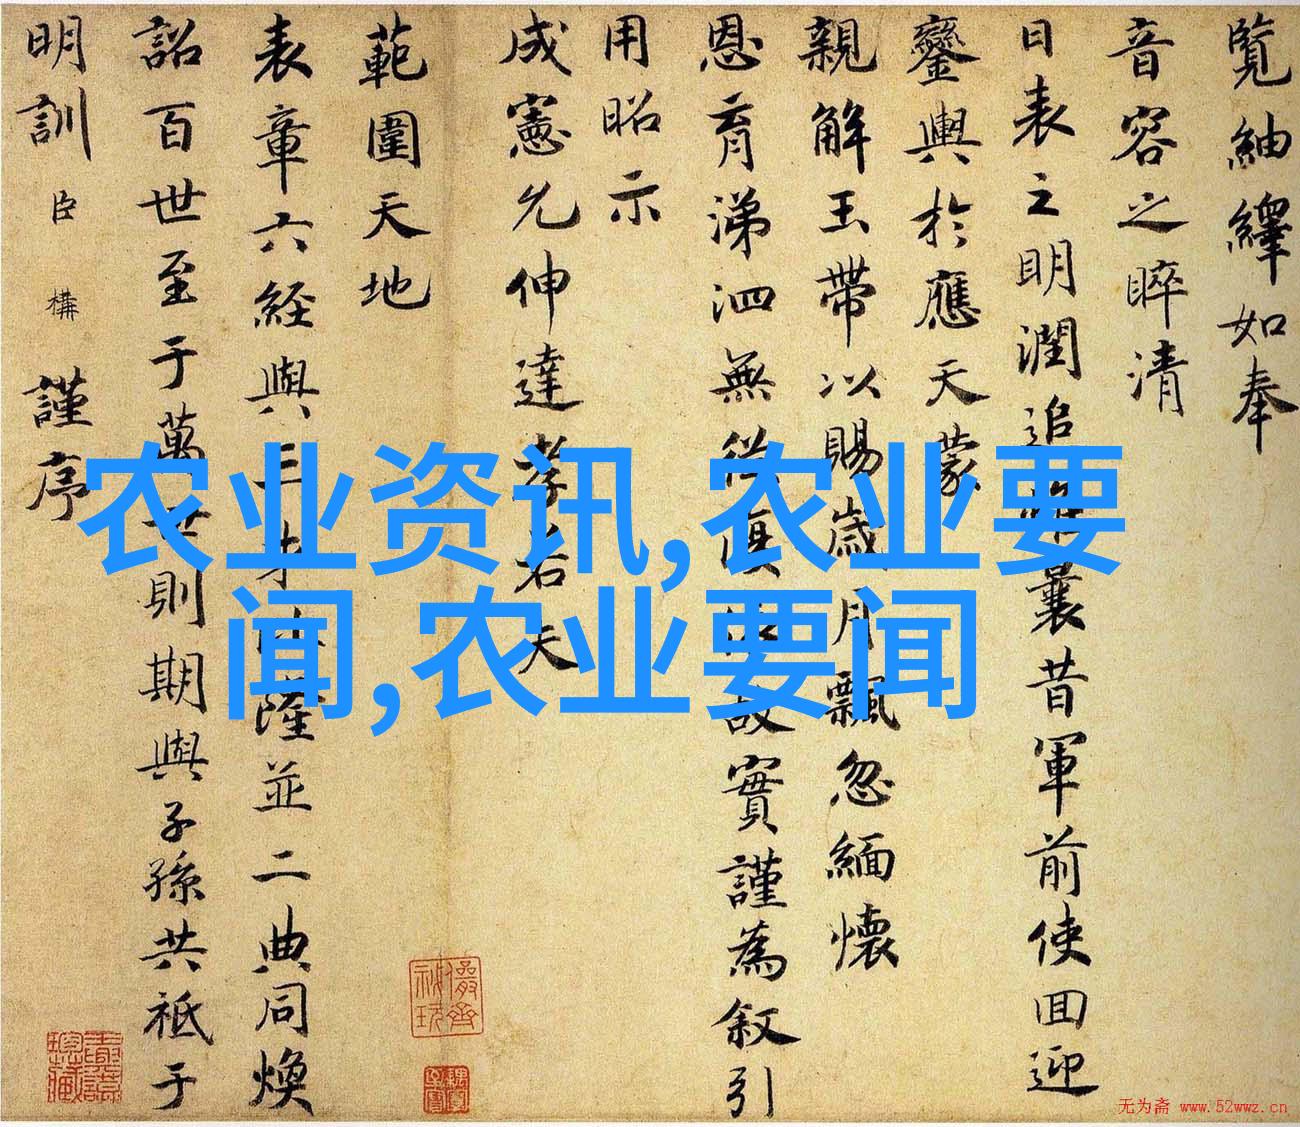 覽紬繹如奉
音容之睟清
日表之明潤追惟曩昔軍前使回迎
鑾輿於應天蒙
親解玉帶以賜歲月飄忽緬懷
恩育涕泗無從故實謹為叙引
用昭示
成憲允伸達孝若夫
範圍天地
表章六経與三才隆並二典同煥
詔百世至于萬世則期與子孫共祗于
明訓臣構謹序
农业资讯,农业要
闻,农业要闻
无为斋 www.52wwz.cn